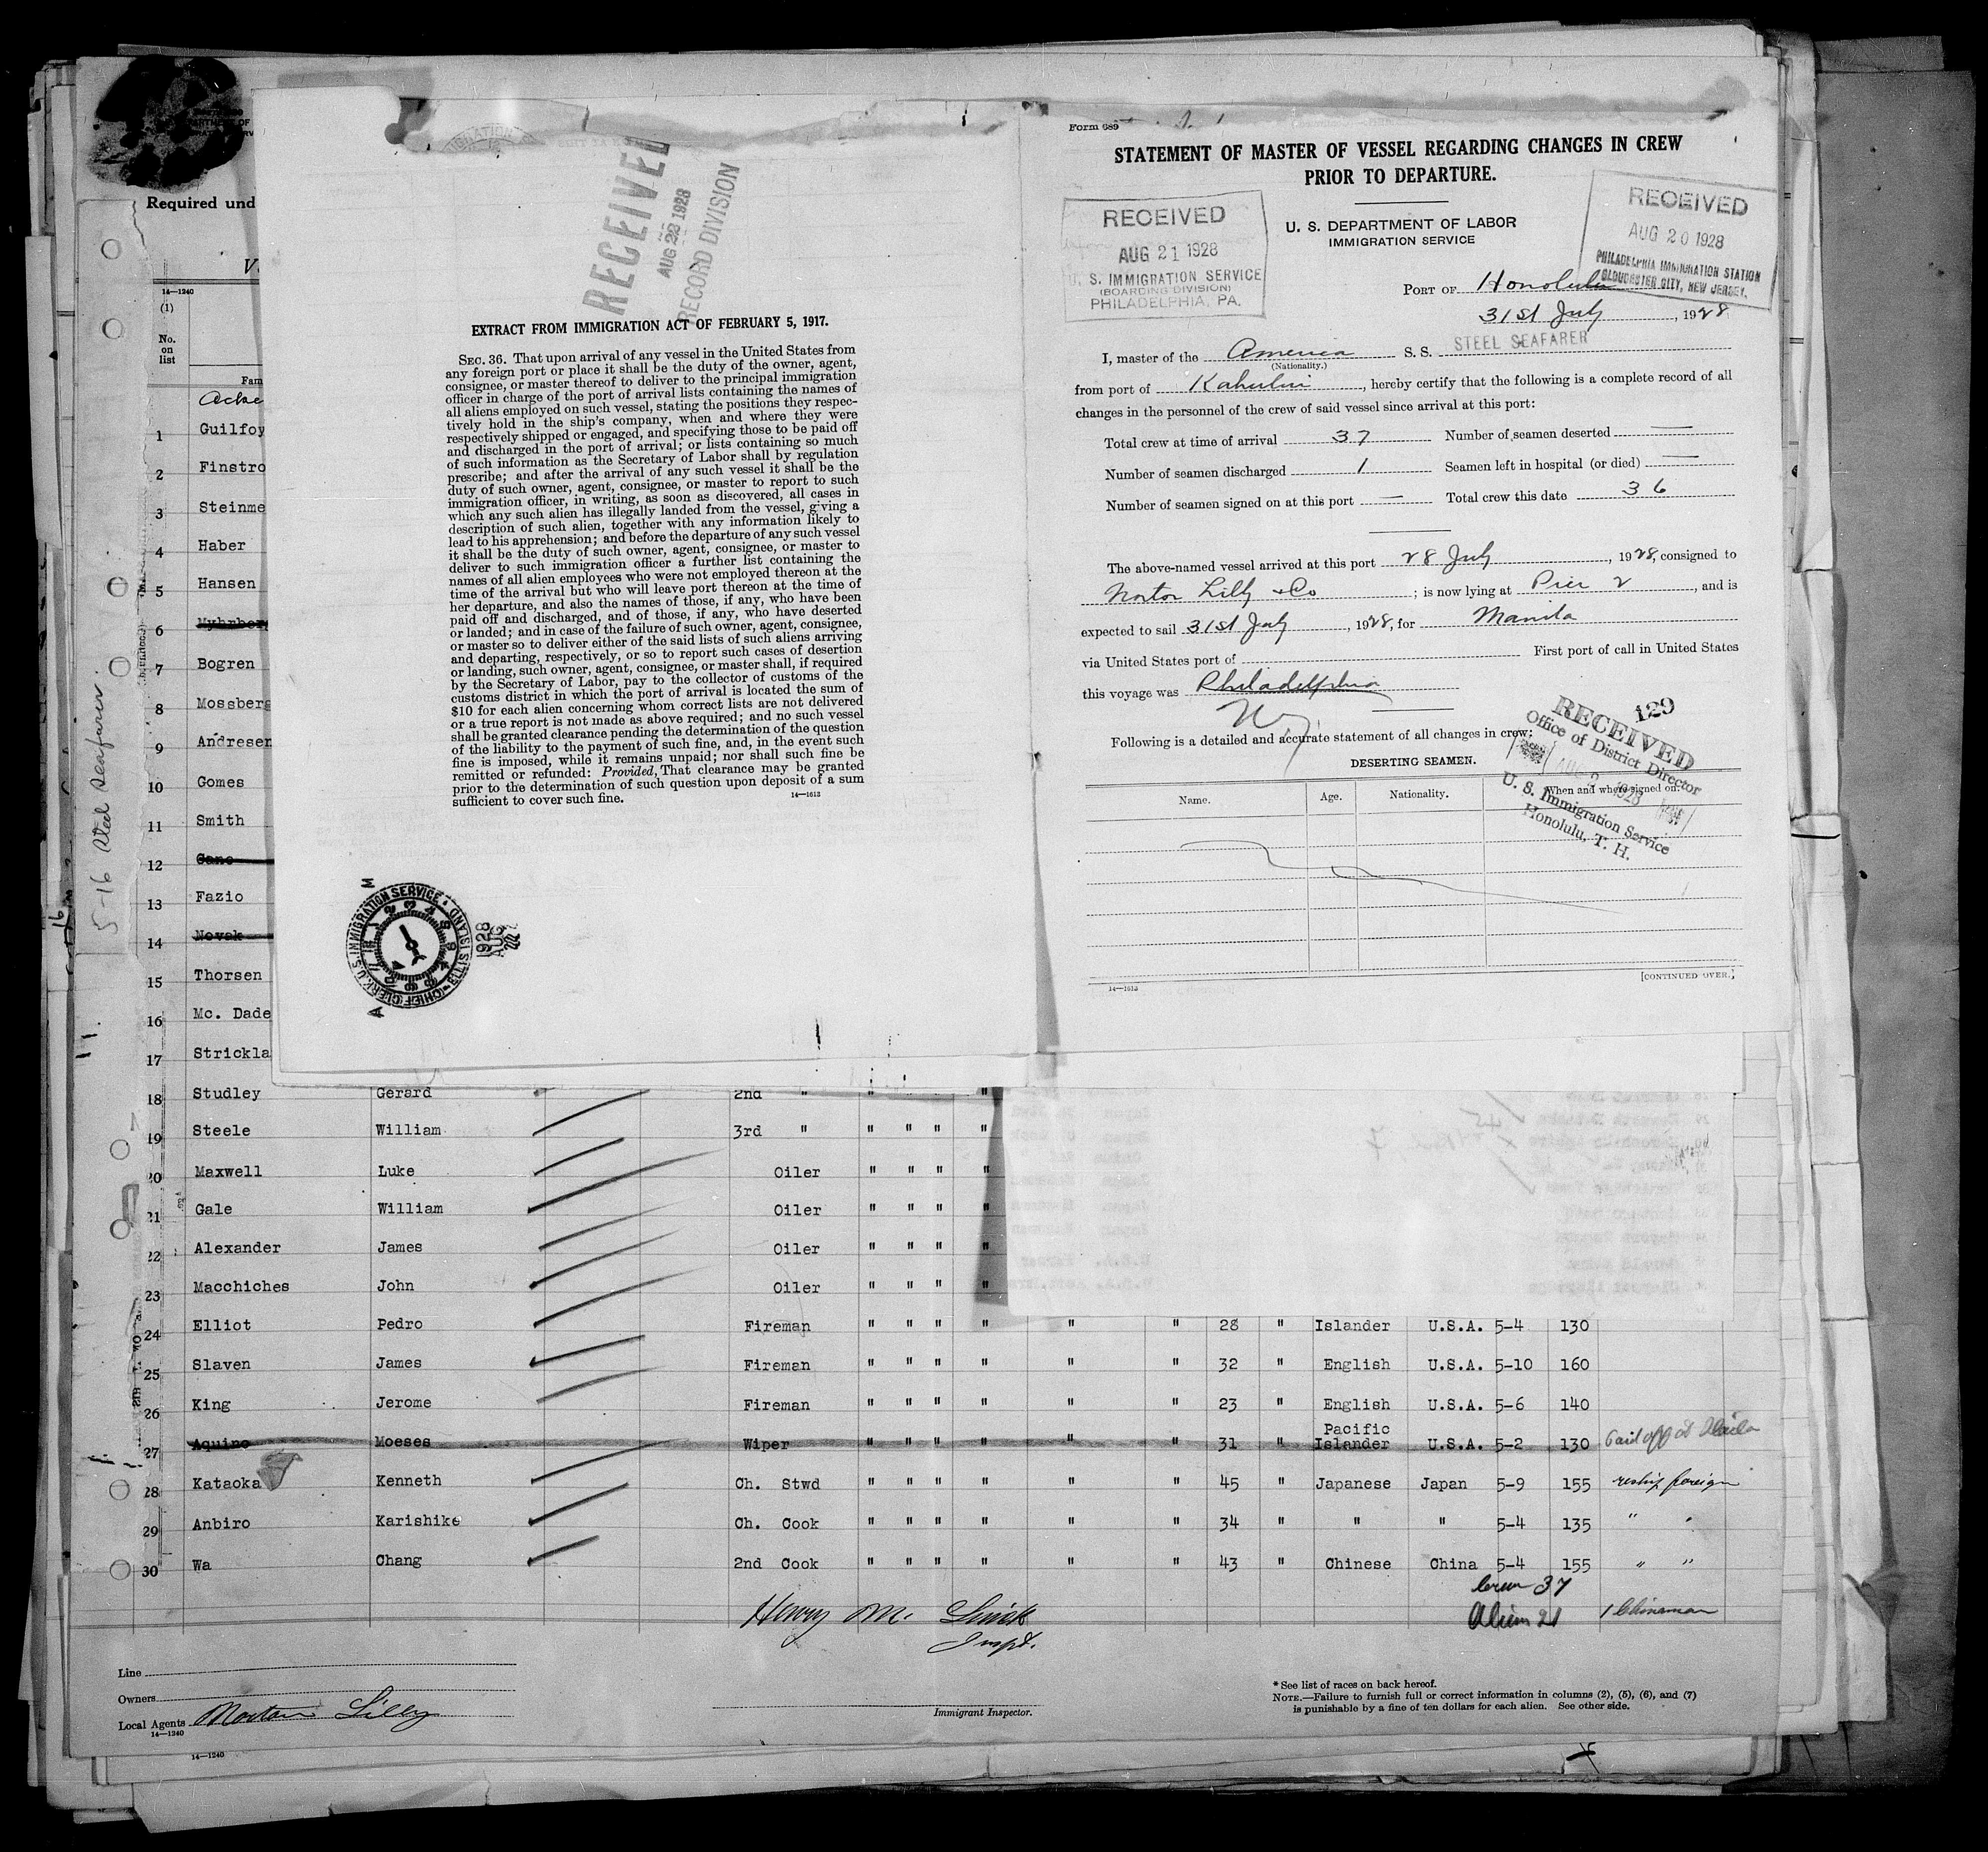 Required und
14—1240
(1)
No.
on
list
Fam
1 Guilfoy
2 Finstro
3 Steinme
4 Haber
5 Hansen
6 Myhrberg
7 Bogren
8 Mossberg
9 Andresen
10 Gomes
11 Smith
12 Cane
13 Fazio
14 Novak
15 Thorsen
16 Mc. Dade
17 Strickla
5-16 Steel Seafarer.
RECEIVED
AUG 22 1928
RECORD DIVISION
EXTRACT FROM IMMIGRATION ACT OF FEBRUARY 5, 1917.
SEC. 36. That upon arrival of any vessel in the United States from
any foreign port or place it shall be the duty of the owner, agent,
consignee, or master thereof to deliver to the principal immigration
officer in charge of the port of arrival lists containing the names of
all aliens employed on such vessel, stating the positions they respec-
tively hold in the ship's company, when and where they were
respectively shipped or engaged, and specifying those to be paid off
and discharged in the port of arrival; or lists containing so much
of such information as the Secretary of Labor shall by regulation
prescribe; and after the arrival of any such vessel it shall be the
duty of such owner, agent, consignee, or master to report to such
immigration officer, in writing, as soon as discovered, all cases in
which any such alien has illegally landed from the vessel, giving a
description of such alien, together with any information likely to
lead to his apprehension; and before the departure of any such vessel
it shall be the duty of such owner, agent, consignee, or master to
deliver to such immigration officer a further list containing the
names of all alien employees who were not employed thereon at the
time of the arrival but who will leave port thereon at the time of
her departure, and also the names of those, if any, who have been
paid off and discharged, and of those, if any, who have deserted
or landed; and in case of the failure of such owner, agent, consignee,
or master so to deliver either of the said lists of such aliens arriving
and departing, respectively, or so to report such cases of desertion
or landing, such owner, agent, consignee, or master shall, if required
by the Secretary of Labor, pay to the collector of customs of the
customs district in which the port of arrival is located the sum of
$10 for each alien concerning whom correct lists are not delivered
or a true report is not made as above required; and no such vessel
shall be granted clearance pending the determination of the question
of the liability to the payment of such fine, and, in the event such
fine is imposed, while it remains unpaid; nor shall such fine be
remitted or refunded: Provided, That clearance may be granted
prior to the determination of such question upon deposit of a sum
sufficient to cover such fine.
14—1613
U.S. IMMIGRATION SERVICE
CHIEF CLERK ELLIS ISLAND
1928
AUG
Form 689
STATEMENT OF MASTER OF VESSEL REGARDING CHANGES IN CREW
PRIOR TO DEPARTURE.
U. S. DEPARTMENT OF LABOR
IMMIGRATION SERVICE
RECEIVED
AUG 21 1928
U. S. IMMIGRATION SERVICE
(BOARDING DIVISION)
PHILADELPHIA, PA.
RECEIVED
AUG 20 1928
PHILADELPHIA IMMIGRATION STATION
GLOUCESTER CITY, NEW JERSEY.
PORT OF Honolulu
31st July, 1928
I, master of the America S. S. STEEL SEAFARER
(Nationality.)
from port of Kahului, hereby certify that the following is a complete record of all
changes in the personnel of the crew of said vessel since arrival at this port:
Total crew at time of arrival 37 Number of seamen deserted —
Number of seamen discharged 1 Seamen left in hospital (or died) —
Number of seamen signed on at this port — Total crew this date 36
The above-named vessel arrived at this port 28 July, 1928, consigned to
Norton Lilly & Co; is now lying at Pier 2, and is
expected to sail 31st July, 1928, for Manila
via United States port of First port of call in United States
this voyage was Philadelphia
N.Y.
129
RECEIVED
Office of District Director
AUG 2 1928
U. S. Immigration Service
Honolulu, T. H.
Following is a detailed and accurate statement of all changes in crew:
DESERTING SEAMEN.
Name. Age. Nationality. When and where signed on.
[CONTINUED OVER.]
14—1613
18 Studley Gerard 2nd " " " " "
19 Steele William 3rd " " " " "
20 Maxwell Luke Oiler " " " "
21 Gale William Oiler " " " "
22 Alexander James Oiler " " " "
23 Macchiches John Oiler " " " "
24 Elliot Pedro Fireman " " " " " " 28 " Islander U.S.A. 5-4 130
25 Slaven James Fireman " " " " " " 32 " English U.S.A. 5-10 160
26 King Jerome Fireman " " " " " " 23 " English U.S.A. 5-6 140
27 Aquino Moeses Wiper " " " " " " 31 " Pacific Islander U.S.A. 5-2 130 Paid off at Manila
28 Kataoka Kenneth Ch. Stwd " " " " " " 45 " Japanese Japan 5-9 155 reship foreign
29 Anbiro Karishike Ch. Cook " " " " " " 34 " " " 5-4 135 " "
30 Wa Chang 2nd Cook " " " " " " 43 " Chinese China 5-4 155 " "
Crew 37
Alien 21 1 Chinaman
Henry M.
Inspt.
Line
Owners
Local Agents Norton Lilly
14—1240
Immigrant Inspector.
* See list of races on back hereof.
NOTE.—Failure to furnish full or correct information in columns (2), (5), (6), and (7)
is punishable by a fine of ten dollars for each alien. See other side.
14—1240